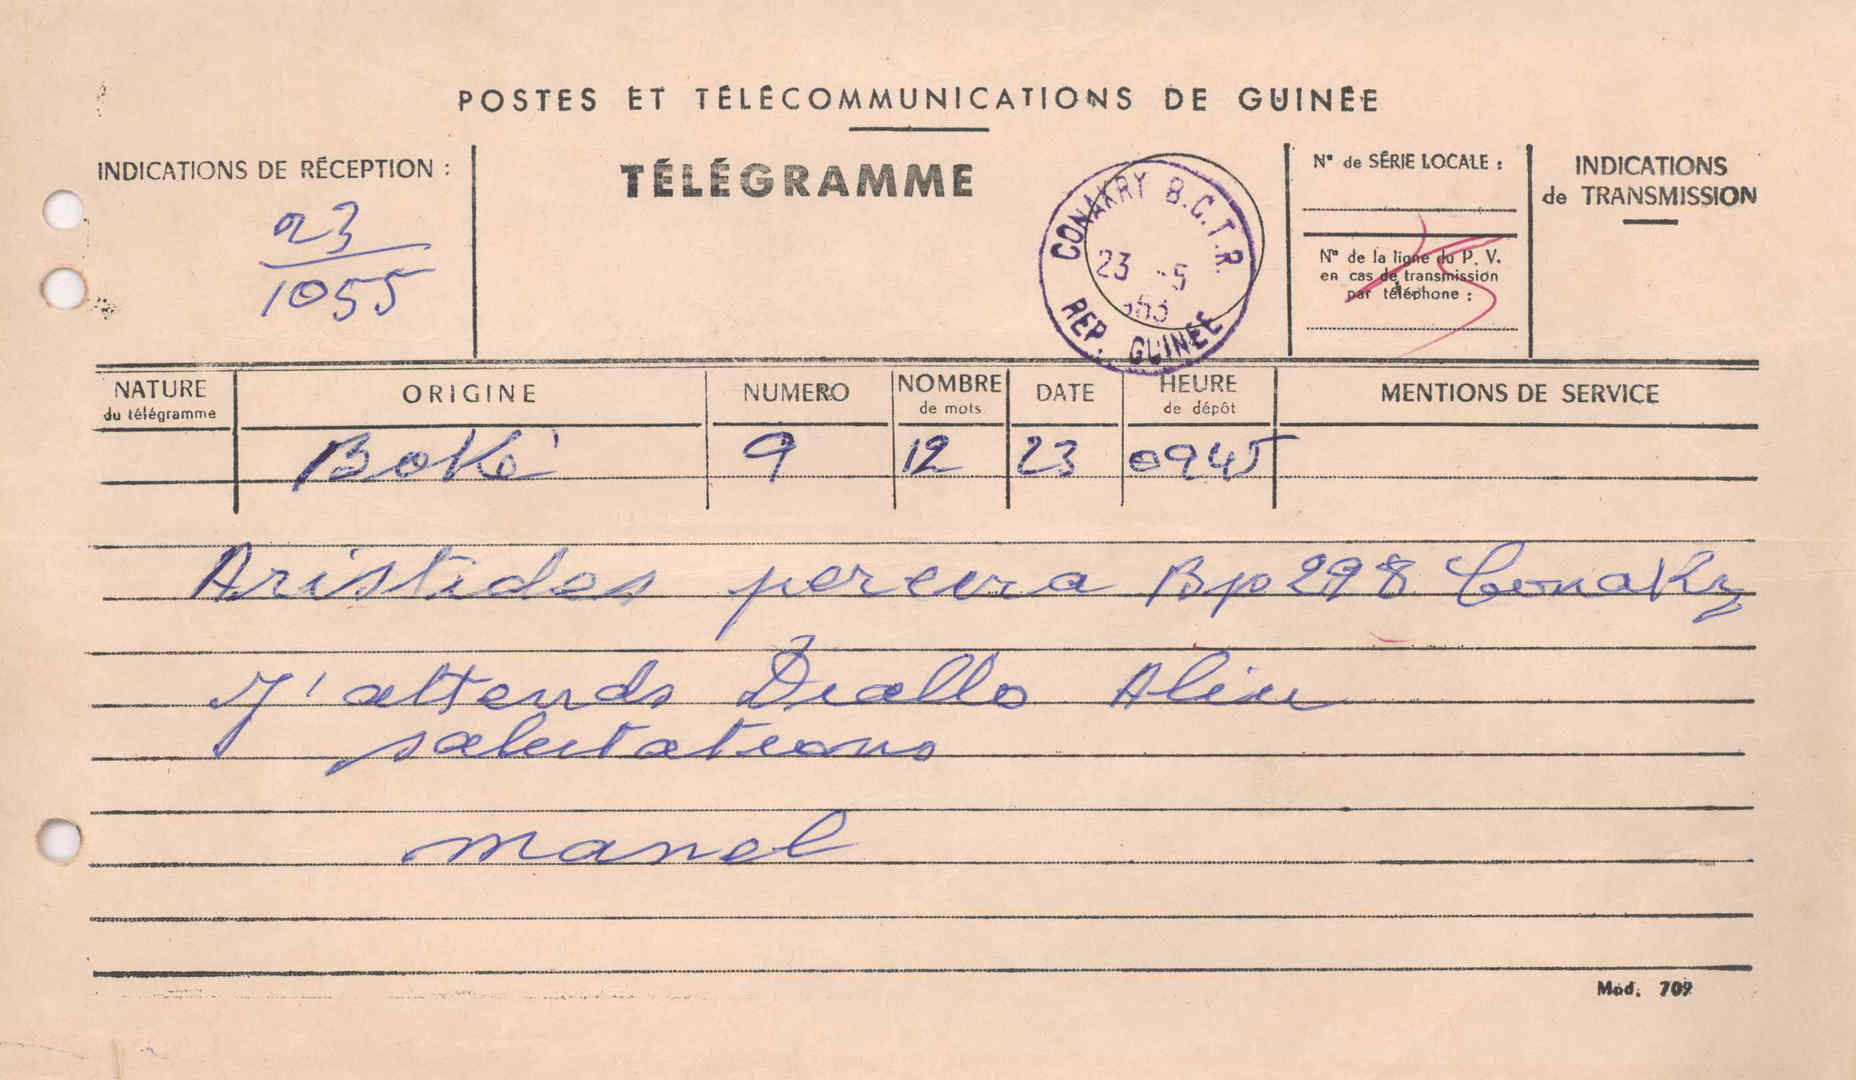 POSTES ET TÉLÉCOMMUNICATIONS DE GUINÉE
INDICATIONS DE RÉCEPTION :
23
1055
TÉLÉGRAMME
CONAKRY B.C.T.R.
23 -5
REP. GUINÉE
N° de SÉRIE LOCALE :
N° de la ligne du P. V.
en cas de transmission
par téléphone :
INDICATIONS
de TRANSMISSION
NATURE
du télégramme
ORIGINE
NUMERO
NOMBRE
de mots
DATE
HEURE
de dépôt
MENTIONS DE SERVICE
Boké 9 12 23 0945
Aristides pereira Bp 298 Conakry
J'attends Diallo Aliu
salutations
manel
Mod. 709